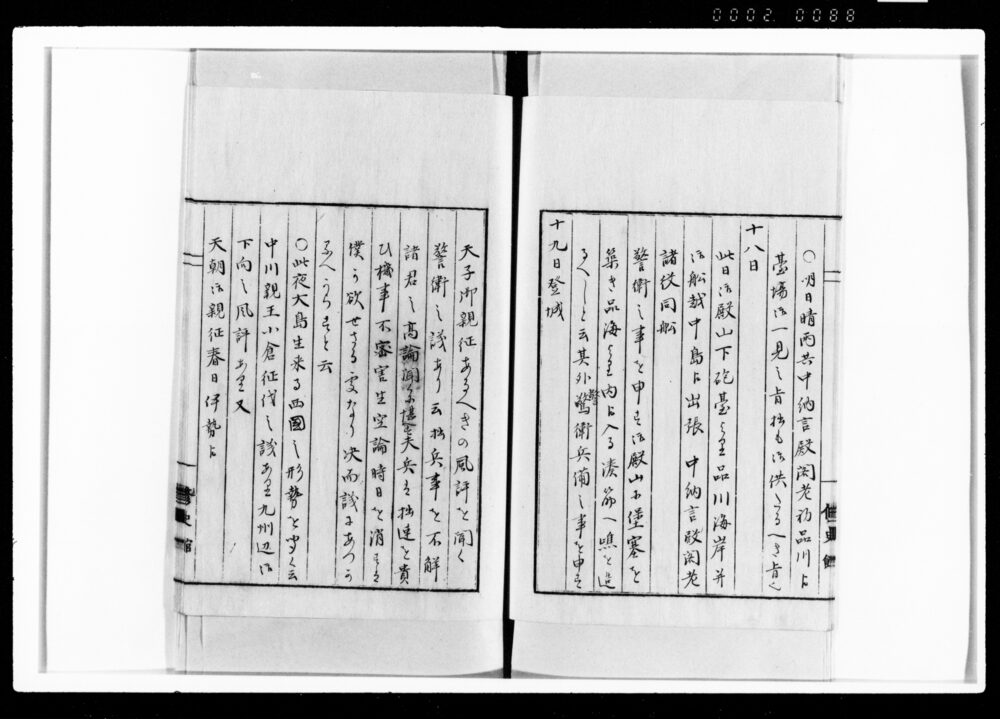 0002 0088
○明日晴雨共中納言殿閣老初品川ゟ
臺場御一見之旨拙も御供たるへき旨也
十八日
此日御殿山下砲臺ゟ品川海岸并
御船越中島ゟ出張 中納言殿閣老
諸役同船
警衛之事を申す御殿山に堡塞を
築き品海ゟ内ゟ入る湊筋へ礁を造
るへしと云其外警衛兵備之事を申す
十九日登城
天子御親征あるへきの風評を聞く
警衛之議あり云拙兵事を不解
諸君之高論聞に堪す夫兵は拙速を貴
ひ機事不密害生空論時日を消するは
僕か欲せさる処なり決而議にあつか
ふへからすと云
○此夜大島生来る西國之形勢を聞く云
中川親王小倉征伐之議ありて九州辺御
下向之風評あり又
天朝御親征春日伊勢ゟ
史館